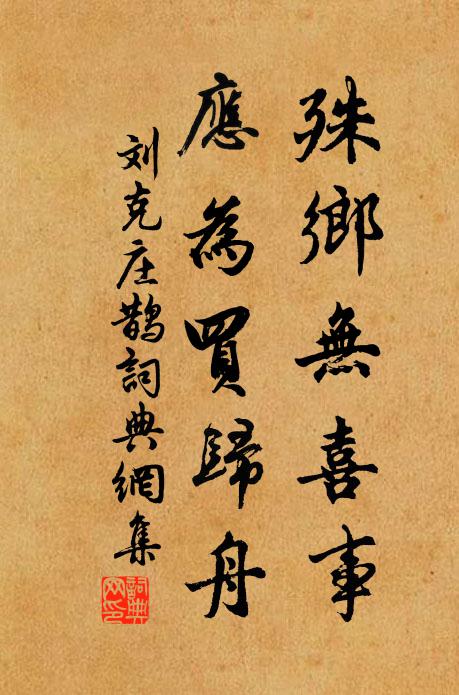 殊鄉無喜事
應為買歸舟
刘克庄鵲詞典網集
詞典網印